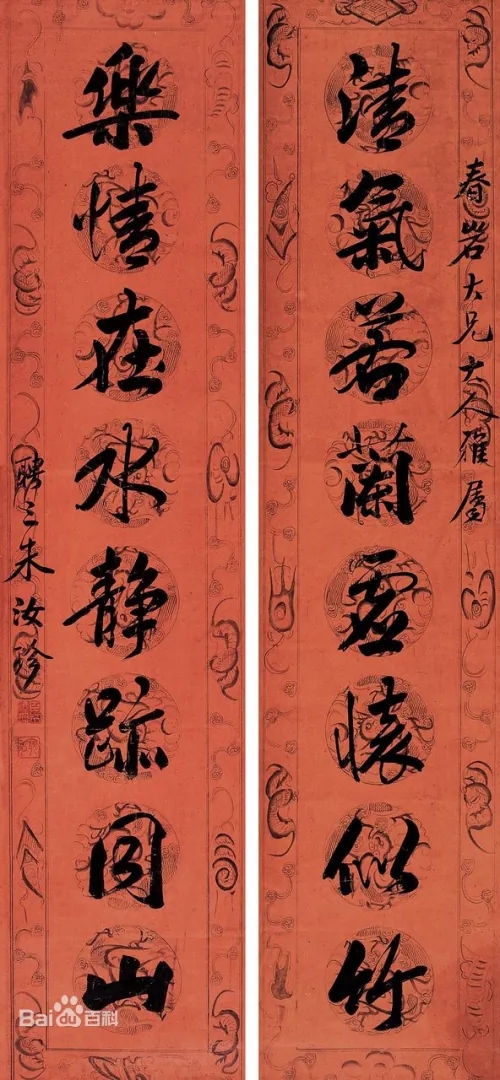 春岩大兄大人雅屬
清氣若蘭虛懷似竹
樂情在水靜跡同山
聘三朱汝珍
Baidu百科